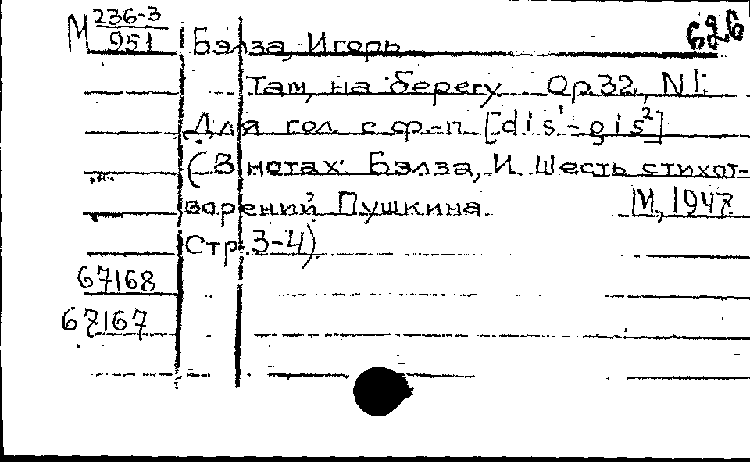 М 236-3
951
626
Бэлза, Игорь
Там, на берегу Op. 32, N1.
Для гол. с ф-п. [dis¹-gis²]
(В нотах: Бэлза, И. Шесть стихот-
ворений Пушкина. М., 1947
Стр. 3-4)
67168
67167